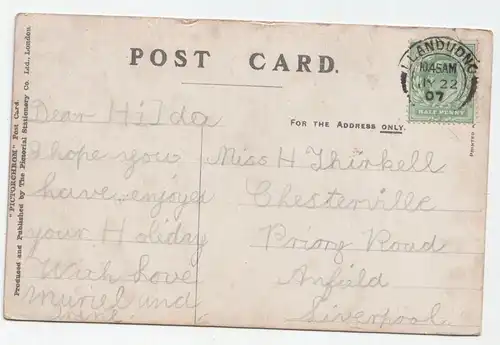 POST CARD.
"PICTORCHROM" Post Card.
Produced and Published by The Pictorial Stationery Co. Ltd., London.
LLANDUDNO
10.45AM
22
07
HALF PENNY
FOR THE ADDRESS ONLY.
PRINTED
Dear Hilda
I hope you
have enjoyed
your Holiday
With Love
Muriel and
Miss H Thirkell
Chesterville
Priory Road
Anfield
Liverpool